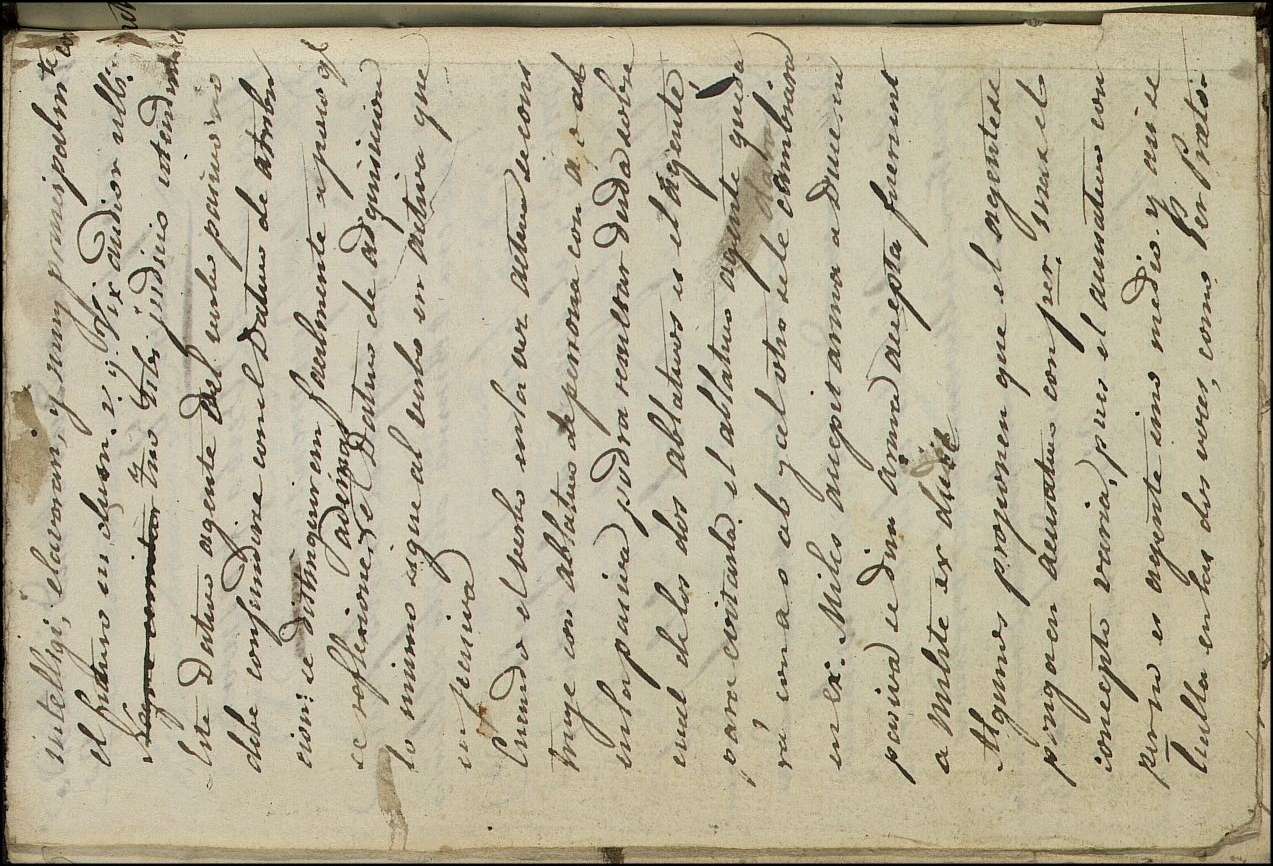 intelligi, elavoran, y muy principalm.te en
el futuro en dus on. v. y. Vix audior ulli
tuo tibi judicio utendum est
Este Dativo agente del verbo pasivo no
debe confundirse con el Dativo de atribu
cion: se distinguen facilmente a poco q.e
se reflexione, Pues el Dativo de adquisicion
lo mismo sigue al verbo en activa que
en pasiva
Cuando el verbo en la voz activa se cons
truye con ablativo de persona con a, o ab
en la pasiva podra resultar duda sobre
cual de los dos ablativos es el agente
para evitarla el ablativo agente queda
rá con a o ab y al otro se le cambiara
en ex. Miles accepit arma a Duce, en
pasiva se dira arma accepta fuerunt
a Milite ex duce
Algunos proponen que el agente se
ponga en acusativo con per. Pero el
concepto varia, pues el acusativo con
per no es agente sino medio. y asi se
halla en las dos voces, como Per Prator